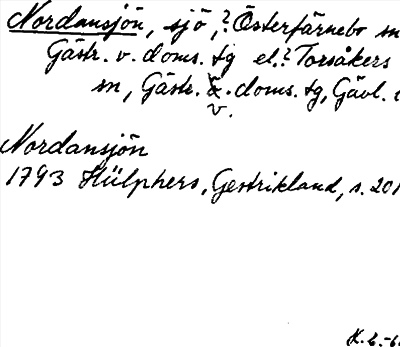 Nordansjön, sjö, ? Österfärnebo sn
Gästr. v. doms. tg el. ? Torsåkers
sn, Gästr. v. doms. tg, Gävl.
Nordansjön
1793 Hülphers, Gestrikland, s. 201